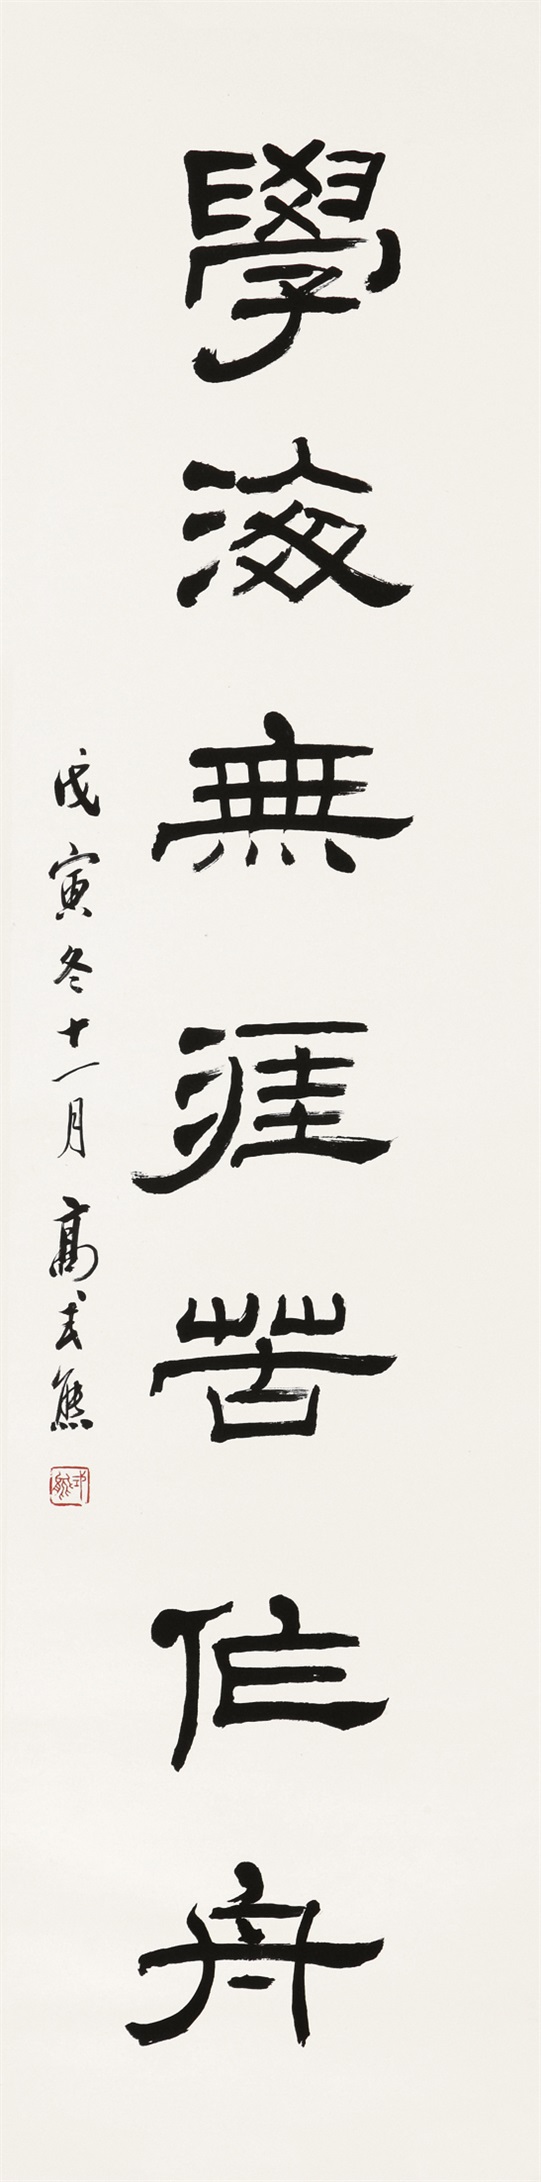 學海無涯苦作舟
戊寅冬十一月高式熊